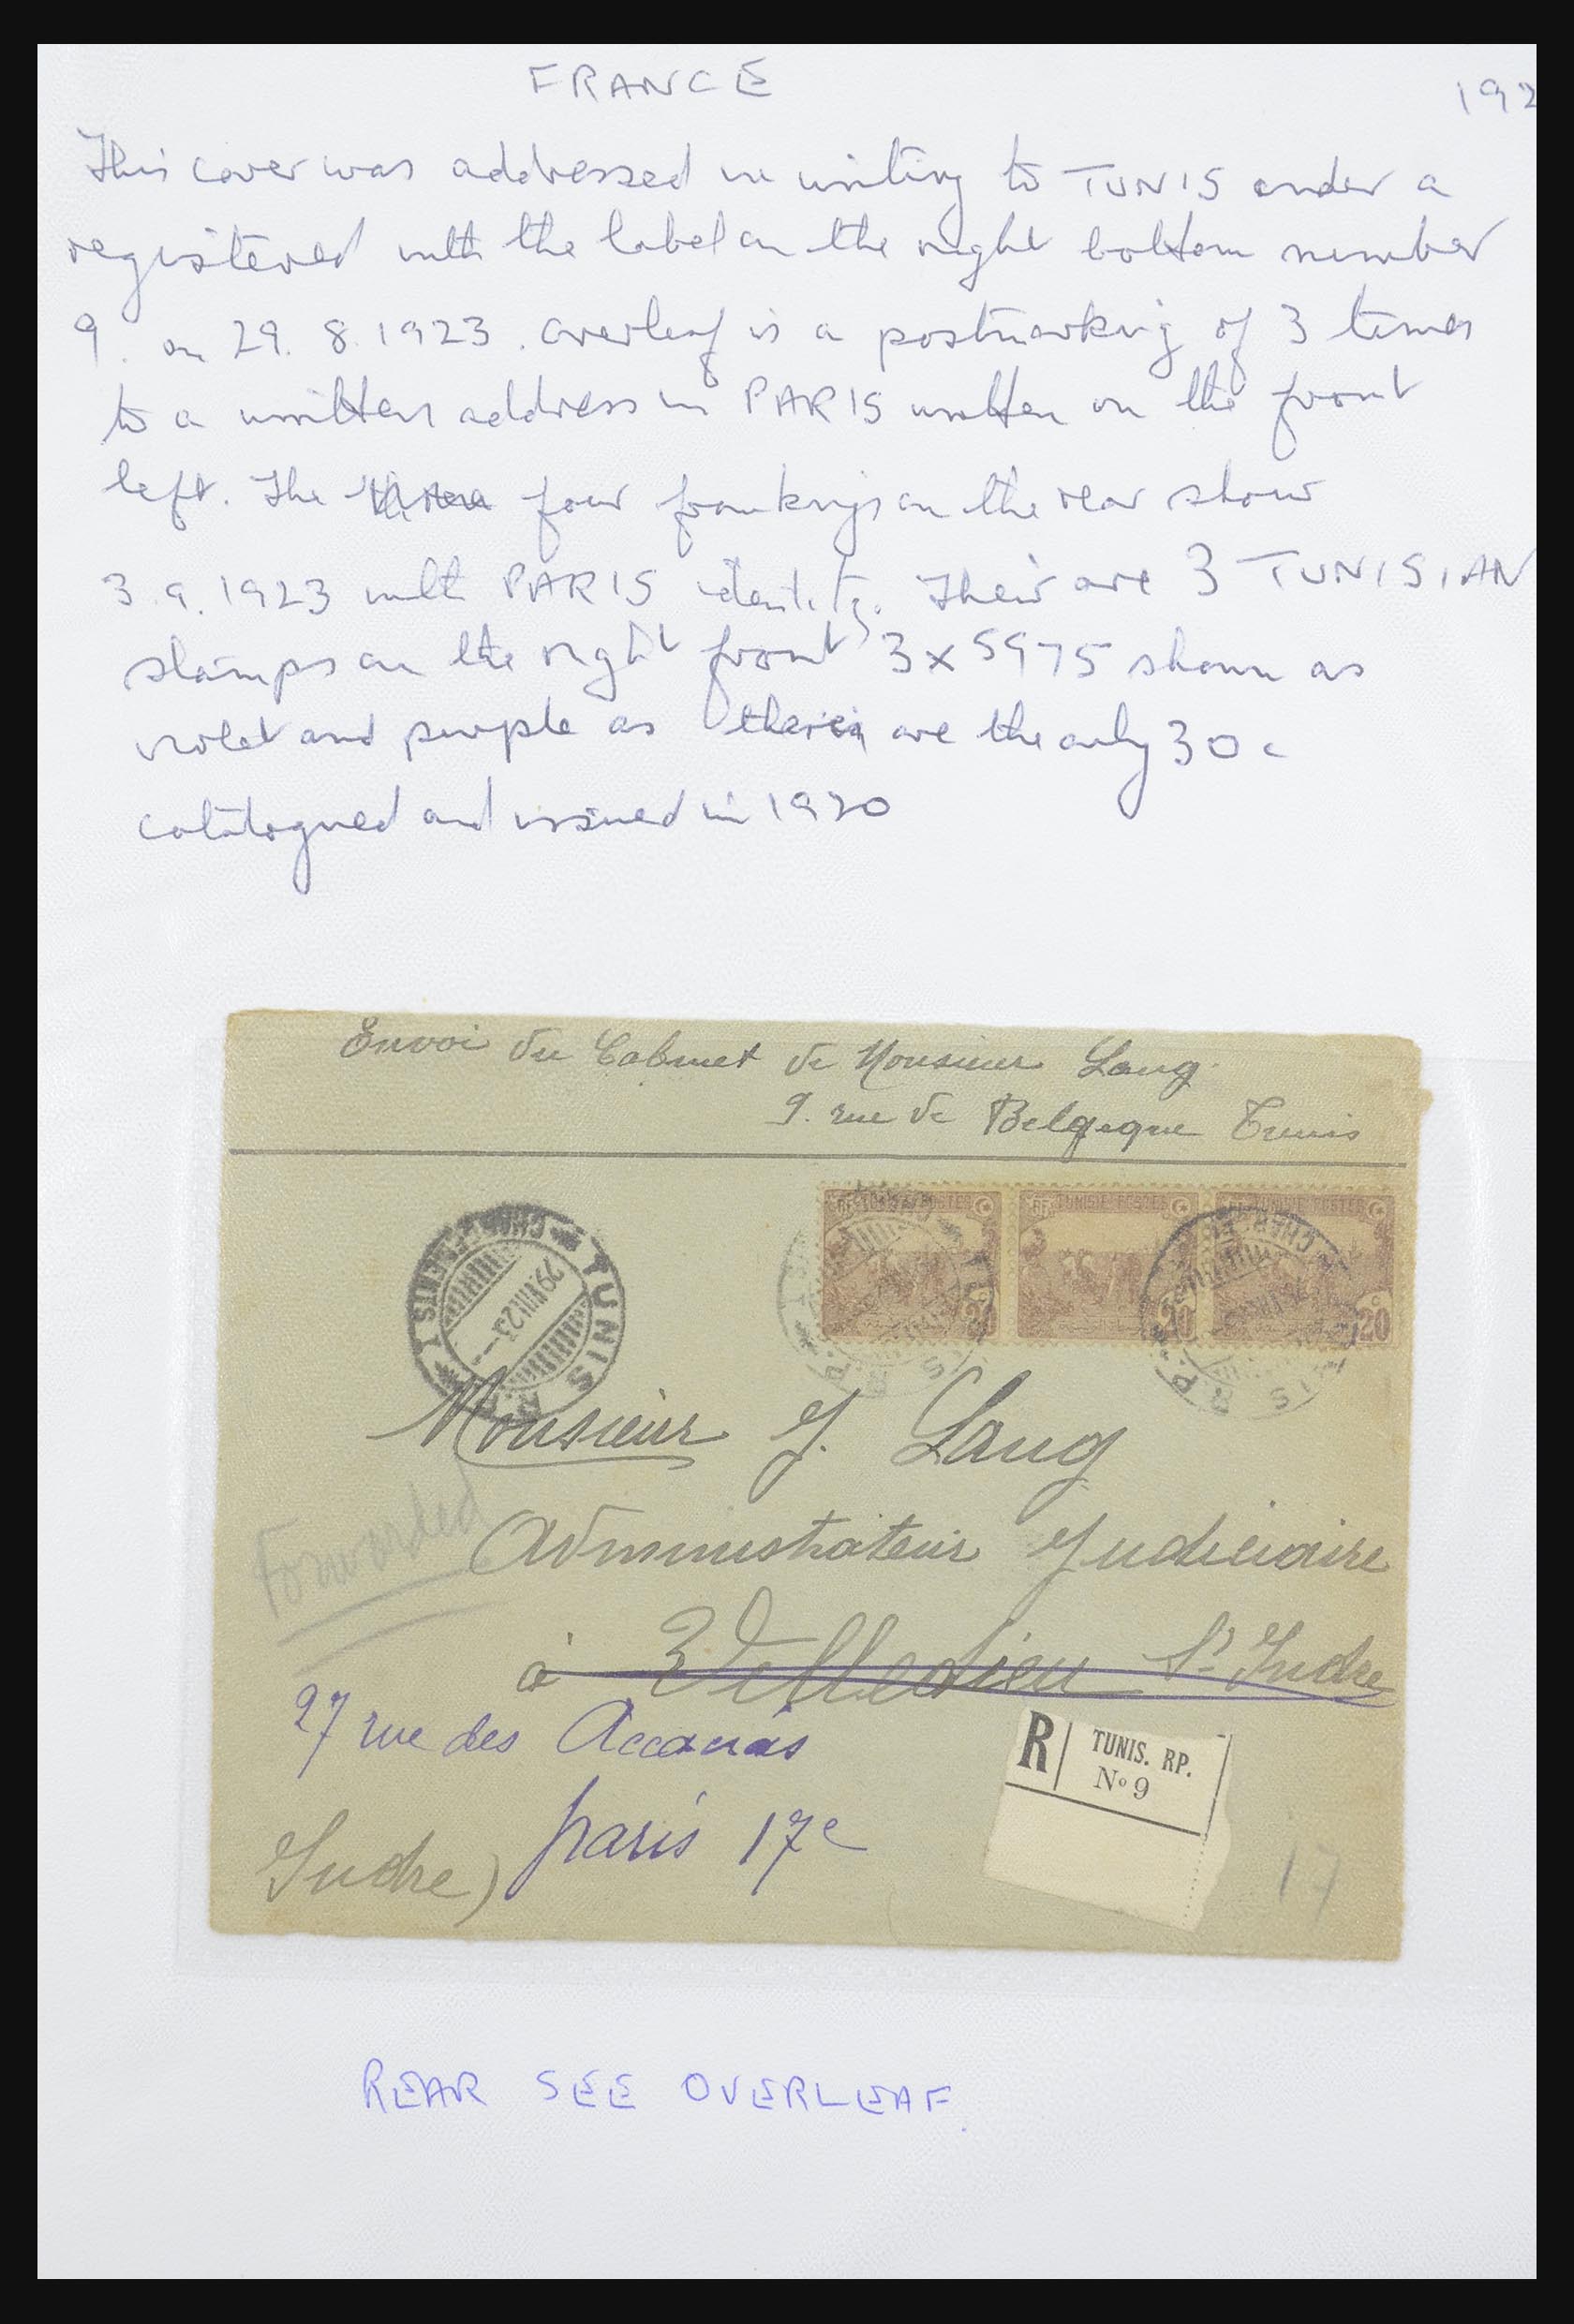 FRANCE
192
This cover was addressed in writing to TUNIS under a
registered with the label on the right bottom number
9. on 29. 8. 1923. overleaf is a postmarking of 3 times
to a written address in PARIS written on the front
left. The four frankings on the rear show
3.9.1923 with PARIS identity. Their are 3 TUNISIAN
stamps on the right front 3x SG75 shown as
violet and purple as are the only 30c
catalogued and issued in 1920
Envoi du Cabinet de Monsieur Lang
9. rue de Belgique Tunis
TUNISIE POSTES
TUNISIE POSTES
RF
20
20
20
TUNIS R.P.
CHARGEMENTS
29 VIII 23
Monsieur J. Lang
Forwarded
Administrateur Judiciaire
à Villedieu s/ Indre
27 rue des
Paris 17e
Indre)
R
TUNIS. RP.
No 9
17
REAR SEE OVERLEAF.